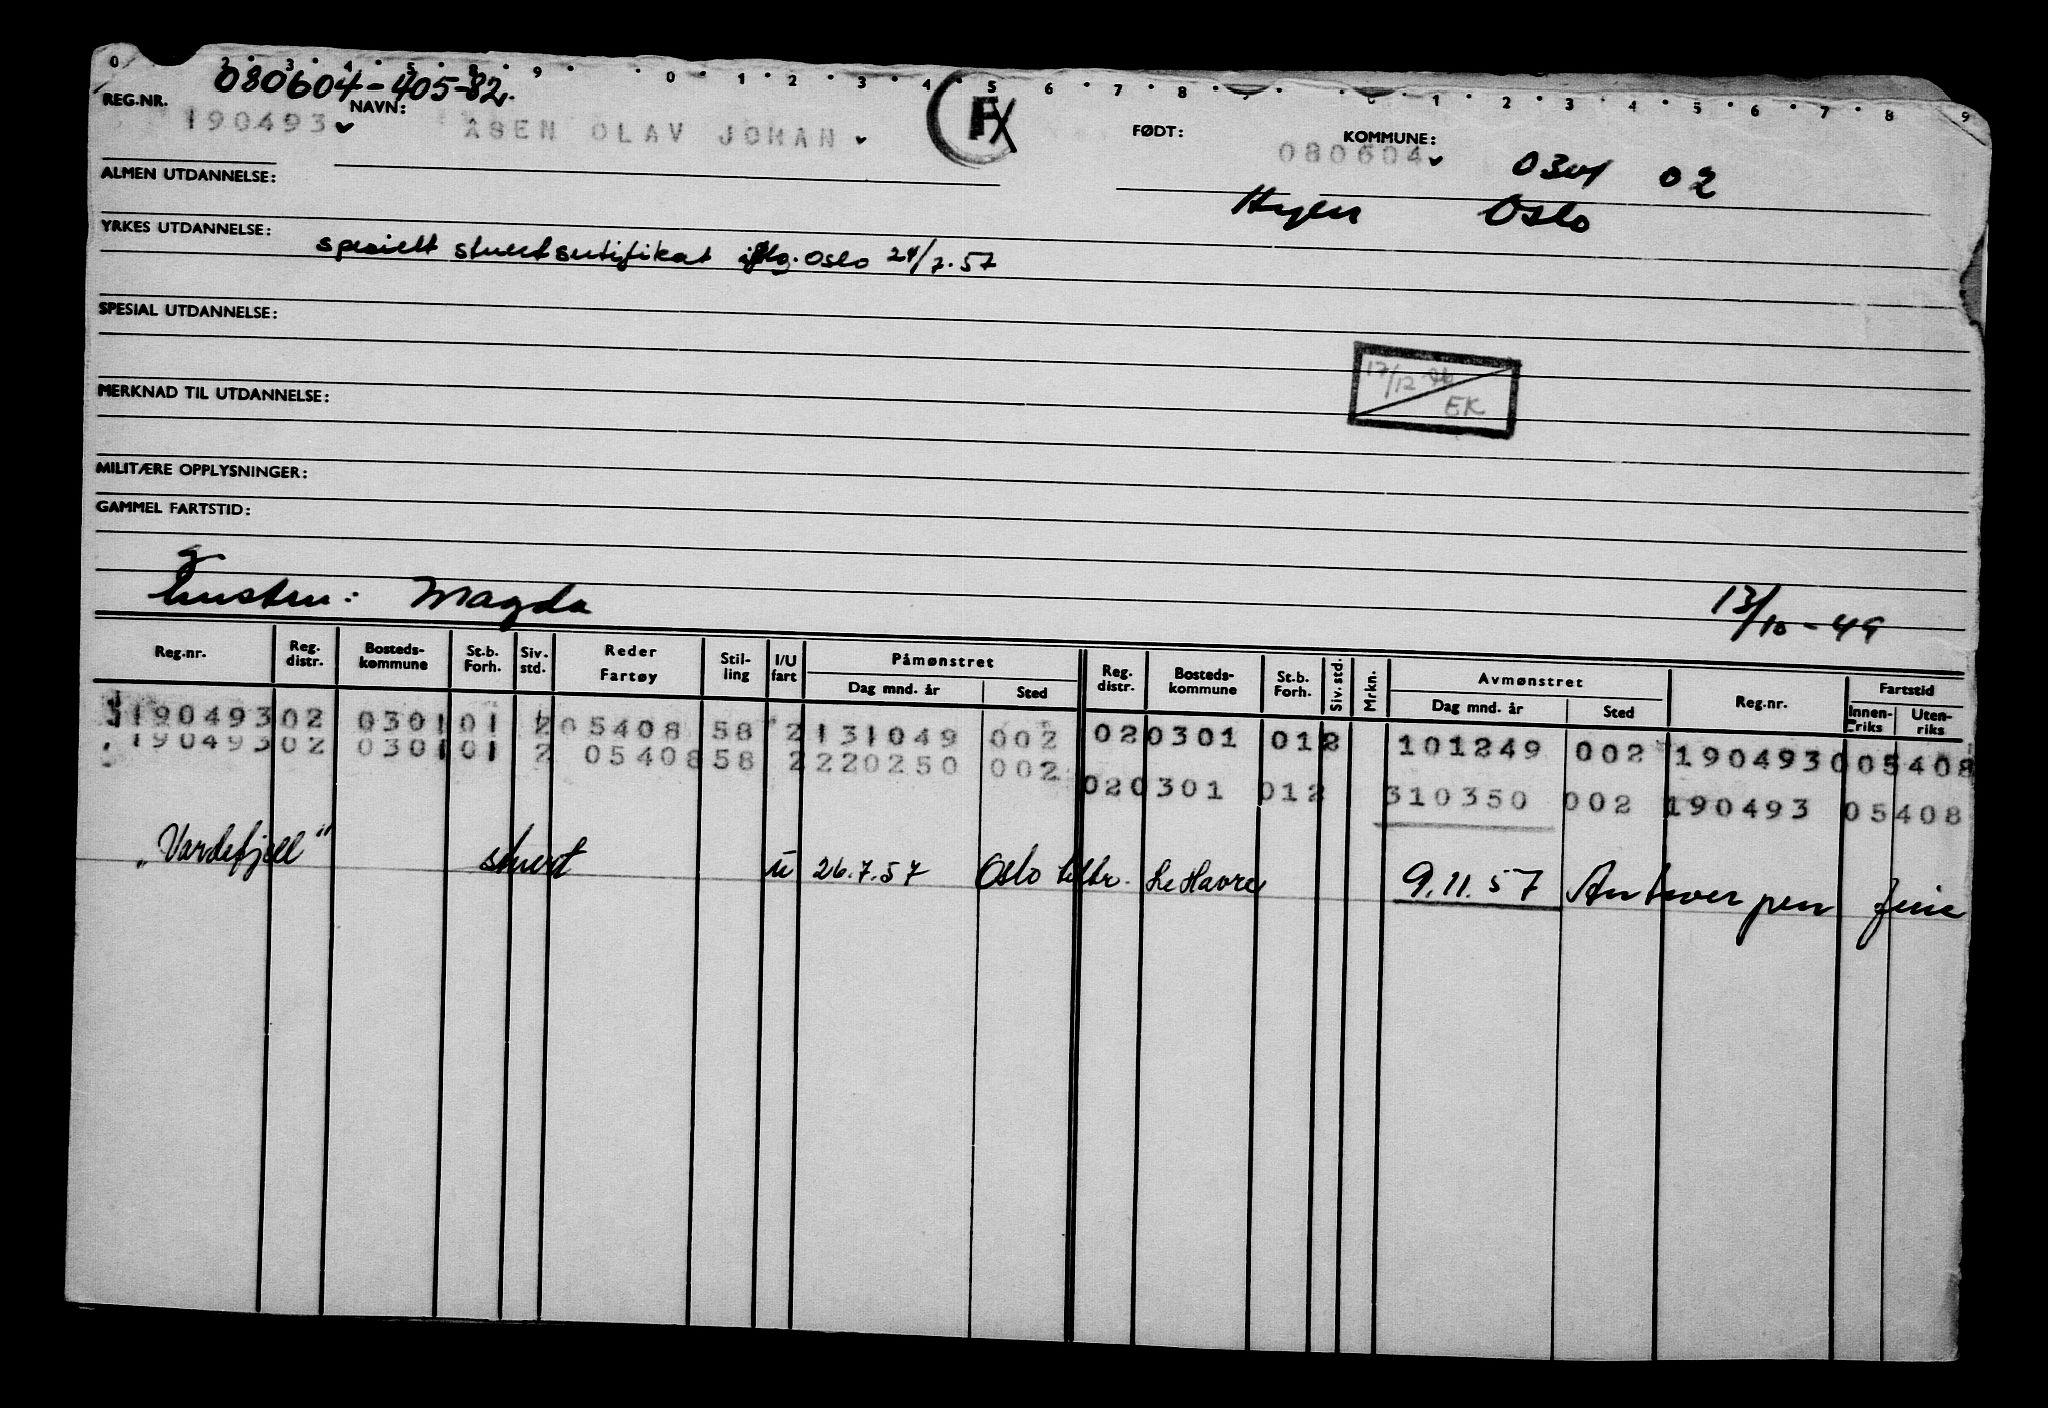 0 2 3 4 5 8 9 0 1 2 3 4 5 6 7 8 0 1 2 3 4 5 6 7 8 9
080604-405-82.
REG.NR. NAVN: FØDT: KOMMUNE:
190493 ÅSEN OLAV JOHAN FX 080604 0301 02
ALMEN UTDANNELSE: Hyen Oslo
YRKES UTDANNELSE: spesielt stuertsertifikat iflg. Oslo 24/7.57
SPESIAL UTDANNELSE:
17/12 EK
MERKNAD TIL UTDANNELSE:
MILITÆRE OPPLYSNINGER:
GAMMEL FARTSTID:
g
hustru: Magda 13/10-49
Reg.nr. Reg. distr. Bosteds-kommune St.b. Forh. Siv. std. Reder Fartøy Stil-ling I/U fart Påmønstret Dag mnd. år Sted Reg. distr. Bosteds-kommune St.b. Forh. Siv. std. Mrkn. Avmønstret Dag mnd. år Sted Reg.nr. Fartstid Innen-riks Uten-riks
190493 02 0301 01 2 05408 58 2 131049 002 02 0301 01 2 101249 002 190493 0 05408
190493 02 0301 01 2 05408 58 2 220250 002 02 0301 01 2 310350 002 190493 05408
"Vardefjell" stuert u 26.7.57 Oslo tiltr. Le Havre 9.11.57 Antwerpen